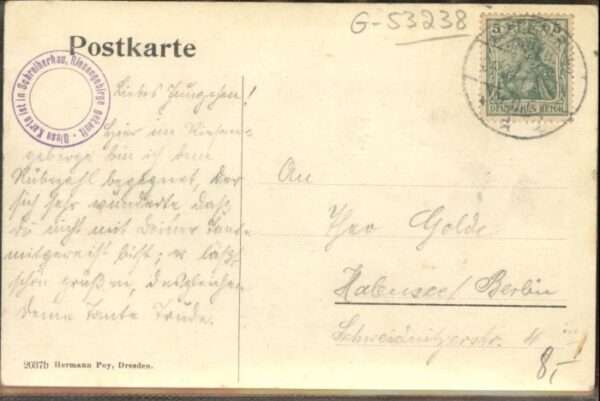 G-53238
Postkarte
Diese Karte ist in Schreiberhau, Riesengebirge gekauft
5
DEUTSCHES REICH
Liebes Jungchen!
Hier im Riesen-
gebirge bin ich dem
Rübezahl begegnet. Der
sich sehr wunderte daß
du nicht mit deiner Tante
mitgereist bist; er läßt
schön grüßen, desgleichen
deine Tante Trude.
An
Theo Golde
Halensee/Berlin
Schweidnitzerstr. 4
8,-
2637b Hermann Poy, Dresden.